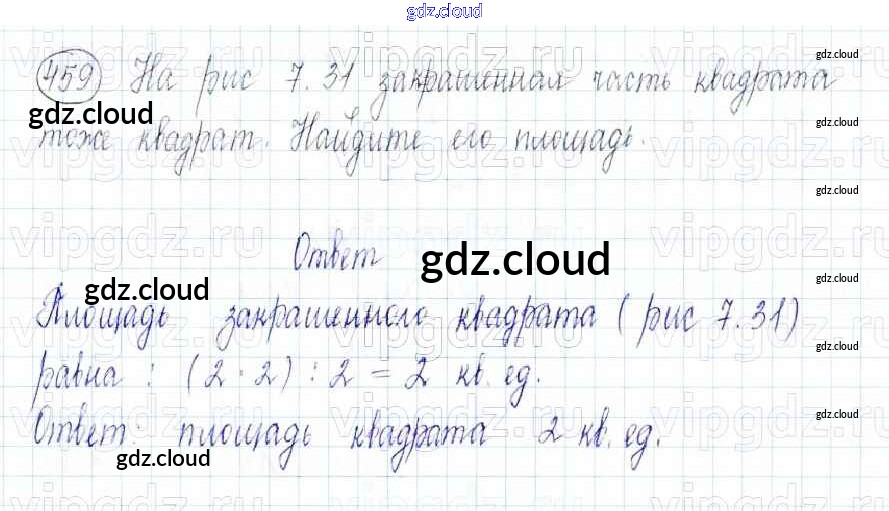 gdz.cloud
459 На рис 7.31 закрашенная часть квадрата
тоже квадрат. Найдите его площадь.
Ответ
Площадь закрашенного квадрата (рис 7.31)
равна : (2 · 2) : 2 = 2 кв. ед.
Ответ: площадь квадрата 2 кв. ед.
gdz.cloud
gdz.cloud
gdz.cloud
gdz.cloud
gdz.cloud
gdz.cloud
gdz.cloud
gdz.cloud
gdz.cloud
gdz.cloud
vipgdz.ru